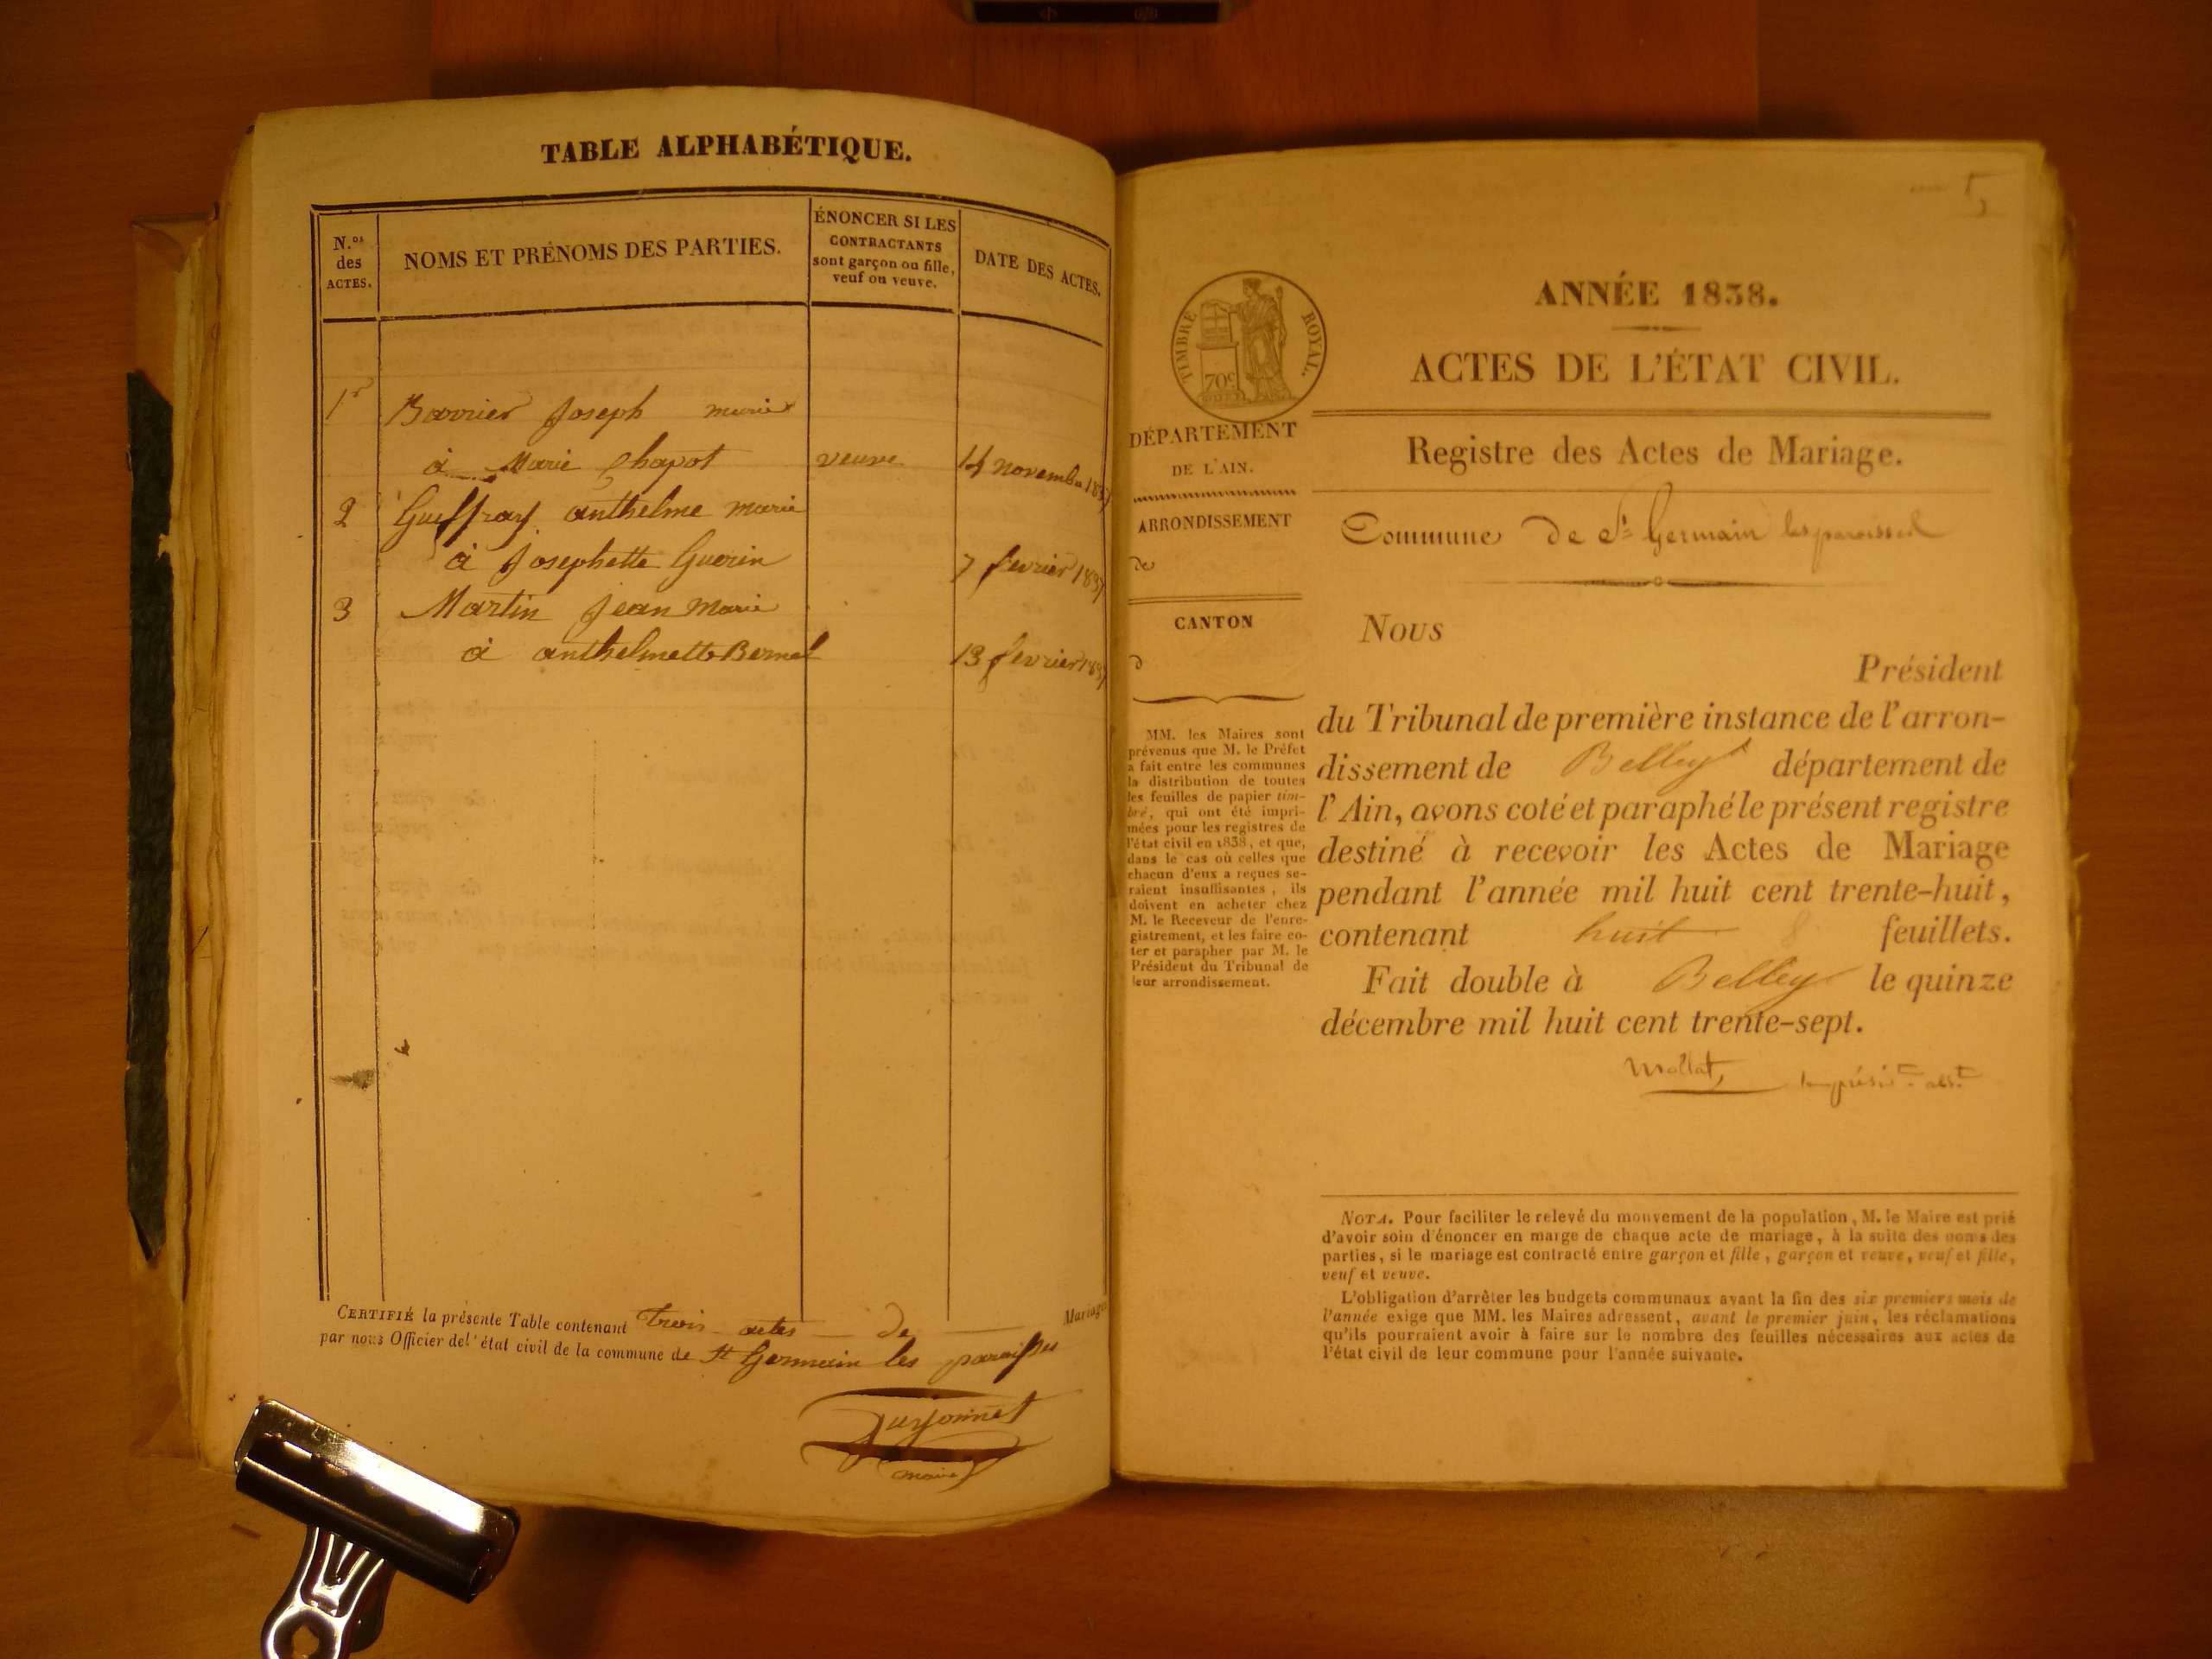 TABLE ALPHABÉTIQUE.
N.os des ACTES.
NOMS ET PRÉNOMS DES PARTIES.
ÉNONCER SI LES
CONTRACTANTS
sont garçon ou fille,
veuf ou veuve.
DATE DES ACTES.
1r Barrier Joseph marie
à Marie Chapot veuve 14 novembre 1837
2 Gueffray anthelme marie
à Josephette Guerin 7 fevrier 1837
3 Martin Jean Marie
à anthelmette Bernet 13 fevrier 1837
CERTIFIÉ la présente Table contenant trois actes de Mariage
par nous Officier del'état civil de la commune de St Germain les paroisses
maire
5
ANNÉE 1838.
ACTES DE L'ÉTAT CIVIL.
TIMBRE ROYAL.
70c
DÉPARTEMENT
DE L'AIN.
ARRONDISSEMENT
de
CANTON
d
MM. les Maires sont
prévenus que M. le Préfet
a fait entre les communes
la distribution de toutes
les feuilles de papier tim-
bré, qui ont été impri-
mées pour les registres de
l'état civil en 1838, et que,
dans le cas où celles que
chacun d'eux a reçues se-
raient insuffisantes, ils
doivent en acheter chez
M. le Receveur de l'enre-
gistrement, et les faire co-
ter et parapher par M. le
Président du Tribunal de
leur arrondissement.
Registre des Actes de Mariage.
Commune de St Germain les paroisses
Nous
Président
du Tribunal de première instance de l'arron-
dissement de Belley département de
l'Ain, avons coté et paraphé le présent registre
destiné à recevoir les Actes de Mariage
pendant l'année mil huit cent trente-huit,
contenant huit 8 feuillets.
Fait double à Belley le quinze
décembre mil huit cent trente-sept.
Mollat,
NOTA. Pour faciliter le relevé du mouvement de la population, M. le Maire est prié
d'avoir soin d'énoncer en marge de chaque acte de mariage, à la suite des noms des
parties, si le mariage est contracté entre garçon et fille, garçon et veuve, veuf et fille,
veuf et veuve.
L'obligation d'arrêter les budgets communaux avant la fin des six premiers mois de
l'année exige que MM. les Maires adressent, avant le premier juin, les réclamations
qu'ils pourraient avoir à faire sur le nombre des feuilles nécessaires aux actes de
l'état civil de leur commune pour l'année suivante.